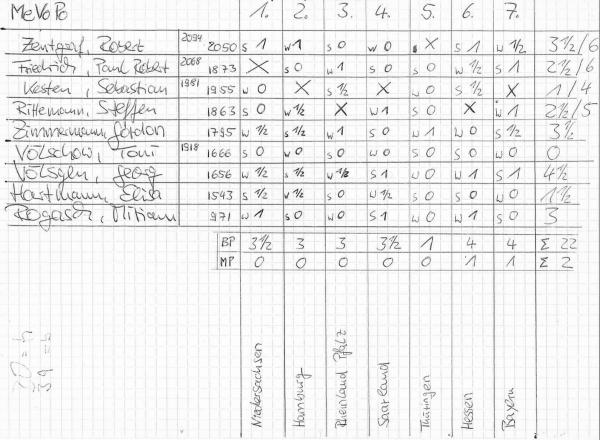 MeVoPo 1. 2. 3. 4. 5. 6. 7.
Zentgraf, Robert 2094 2050 S 1 W 1 S 0 W 0 S X S 1 W 1/2 3 1/2 /6
Friedrich, Paul Robert 2068 1873 X S 0 W 1 S 0 S 0 W 1/2 S 1 2 1/2 /6
Kesten, Sebastian 1981 1955 W 0 X S 1/2 X W 0 S 1/2 X 1/4
Rittemann, Steffen 1863 S 0 W 1/2 X W 1 S 0 X W 1 2 1/2 /5
Zimmermann, Gordon 1795 W 1/2 S 1/2 W 1 S 0 W 1 W 0 S 1/2 3 1/2
Völschow, Toni 1918 1666 S 0 W 0 S 0 W 0 S 0 S 0 W 0 0
Völsgen, Georg 1656 W 1/2 S 1/2 W 1/2 S 1 W 0 W 1 S 1 4 1/2
Hartmann, Elisa 1543 S 1/2 W 1/2 S 0 W 1/2 S 0 S 0 W 0 1 1/2
Rogasch, Miriam 971 W 1 S 0 W 0 S 1 W 0 W 1 S 0 3
BP 3 1/2 3 3 3 1/2 1 4 4 Σ 22
MP 0 0 0 0 0 1 1 Σ 2
Niedersachsen
Hamburg
Rheinland Pfalz
Saarland
Thüringen
Hessen
Bayern